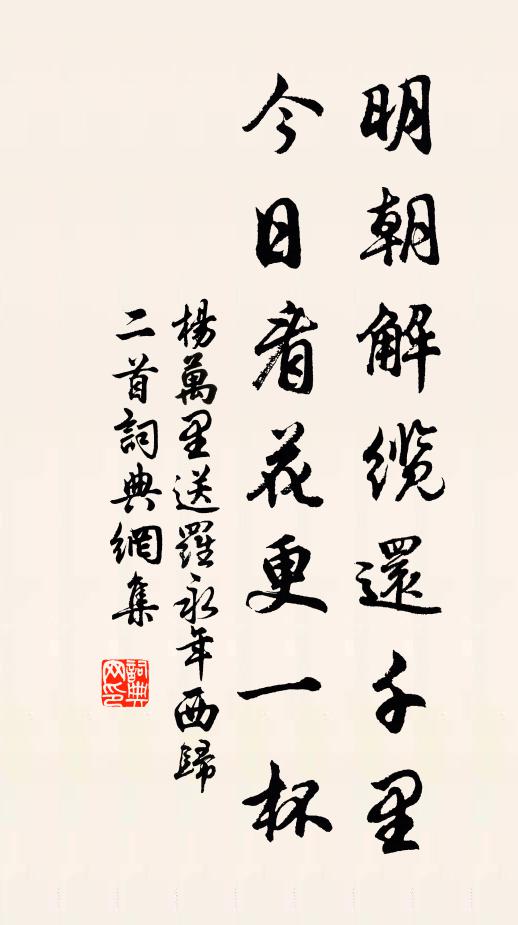 明朝解纜還千里
今日看花更一杯
楊萬里送羅永年西歸
二首詞典網集
詞典网印